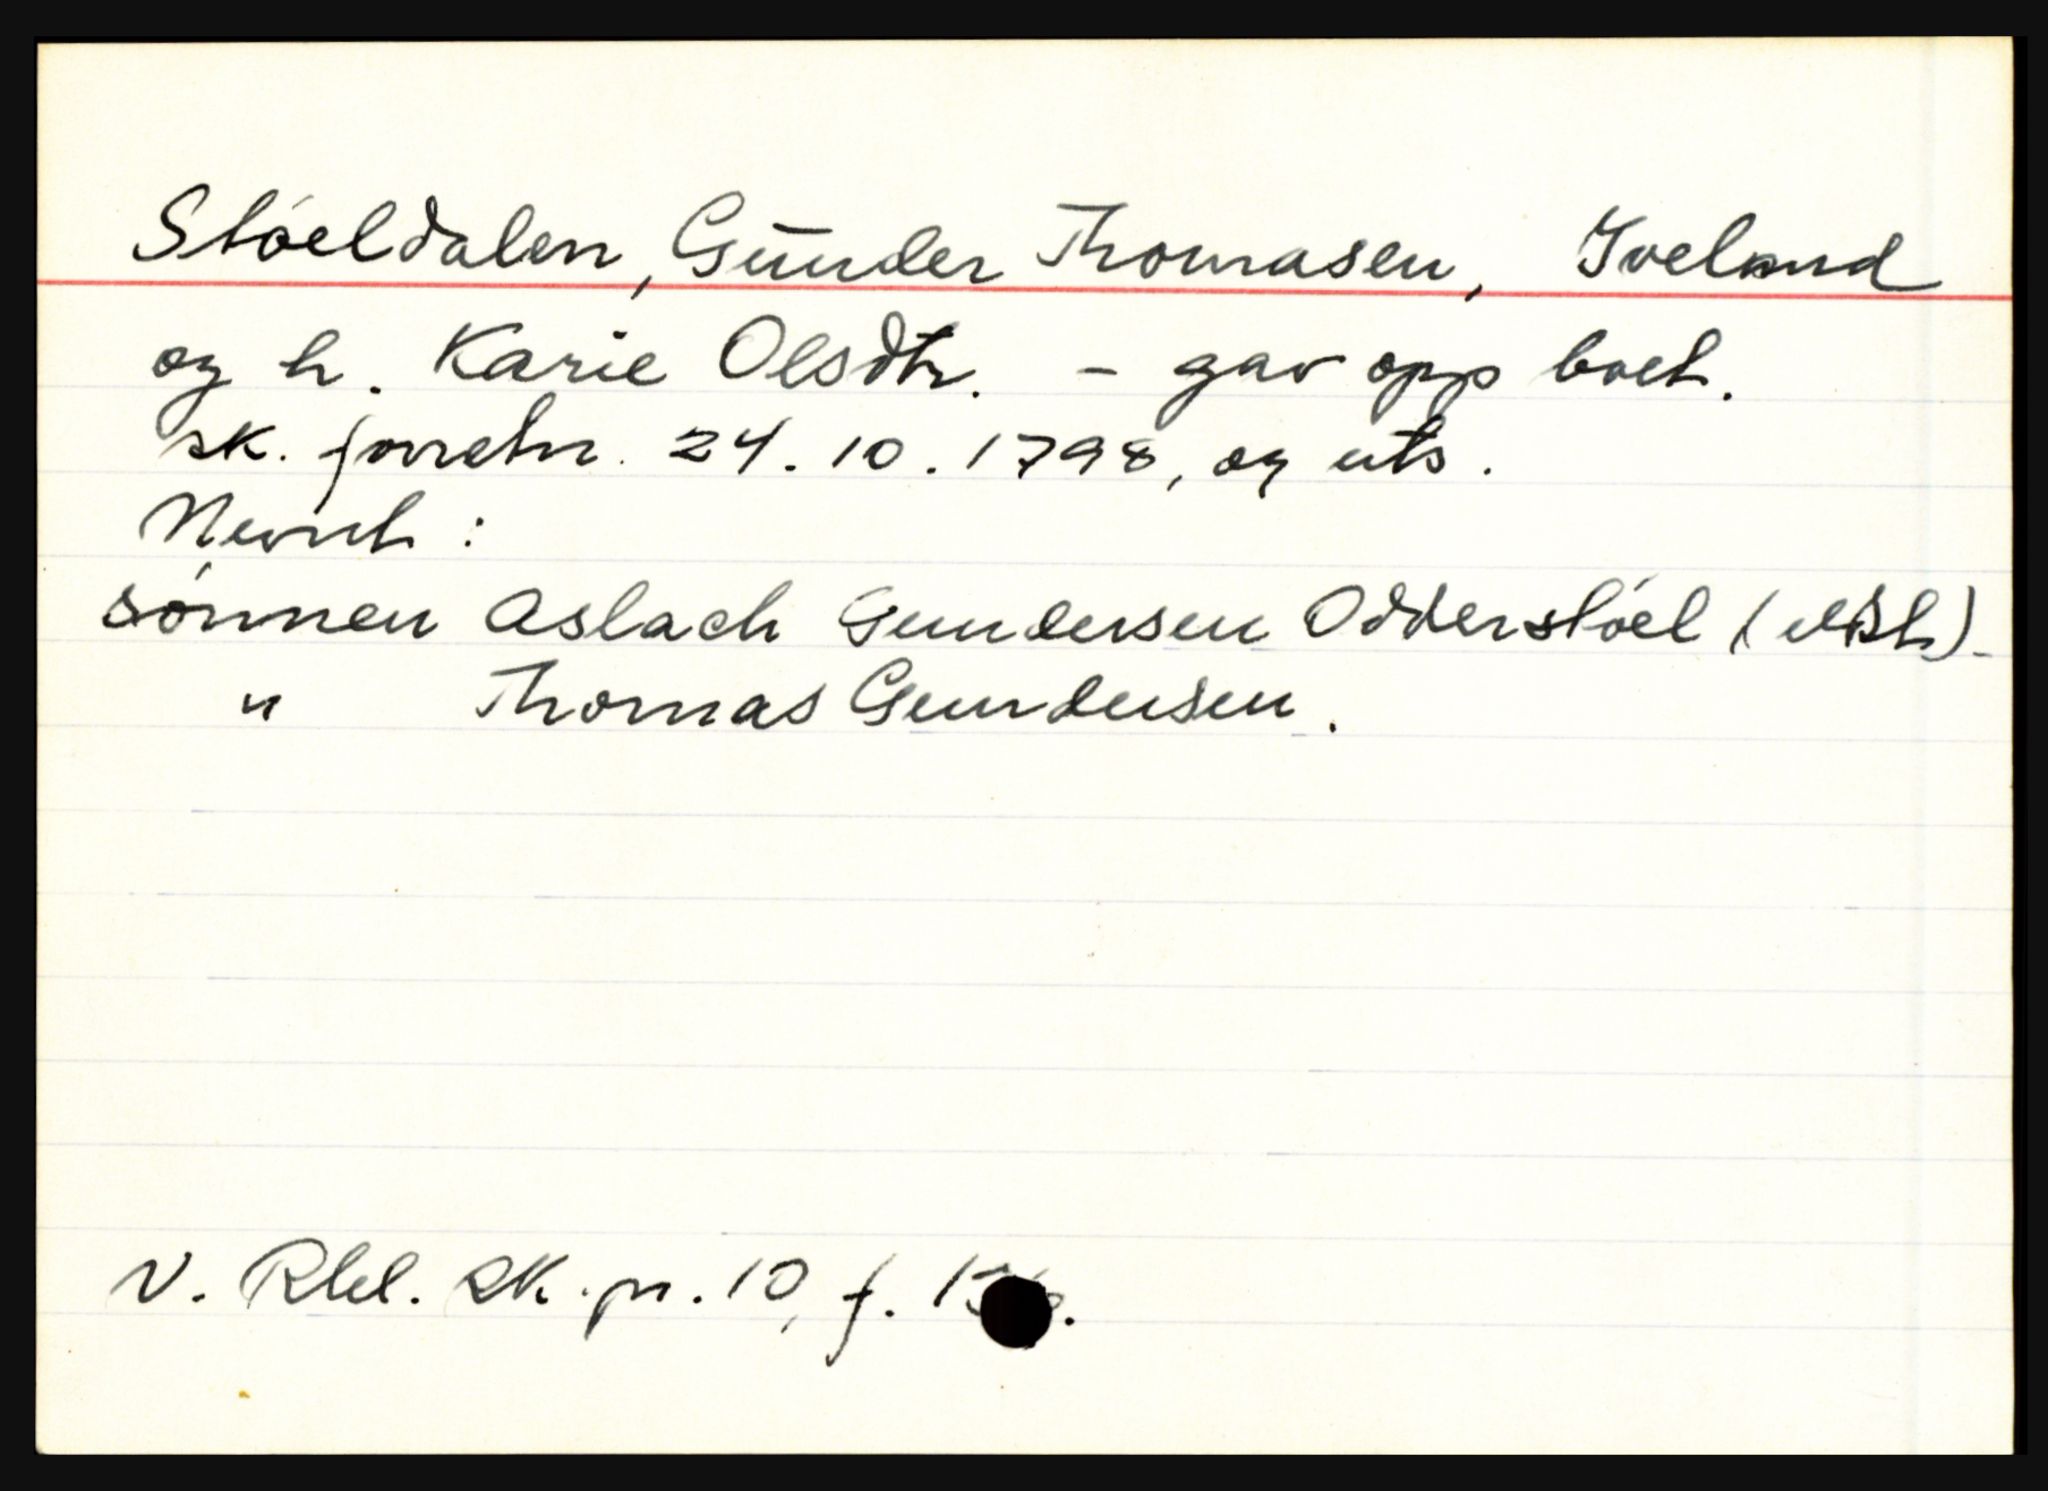 Støeldalen, Gunder Thomasen, Iveland
og h. Karie Olsdtr. - gav opp boet.
sk. forretn. 24.10.1798, og uts.
Nevnt:
sønnen Aslach Gundersen Odderstøel (eldst) -
" Thomas Gundersen.
N. Rbl. sk. pr. 10, f.